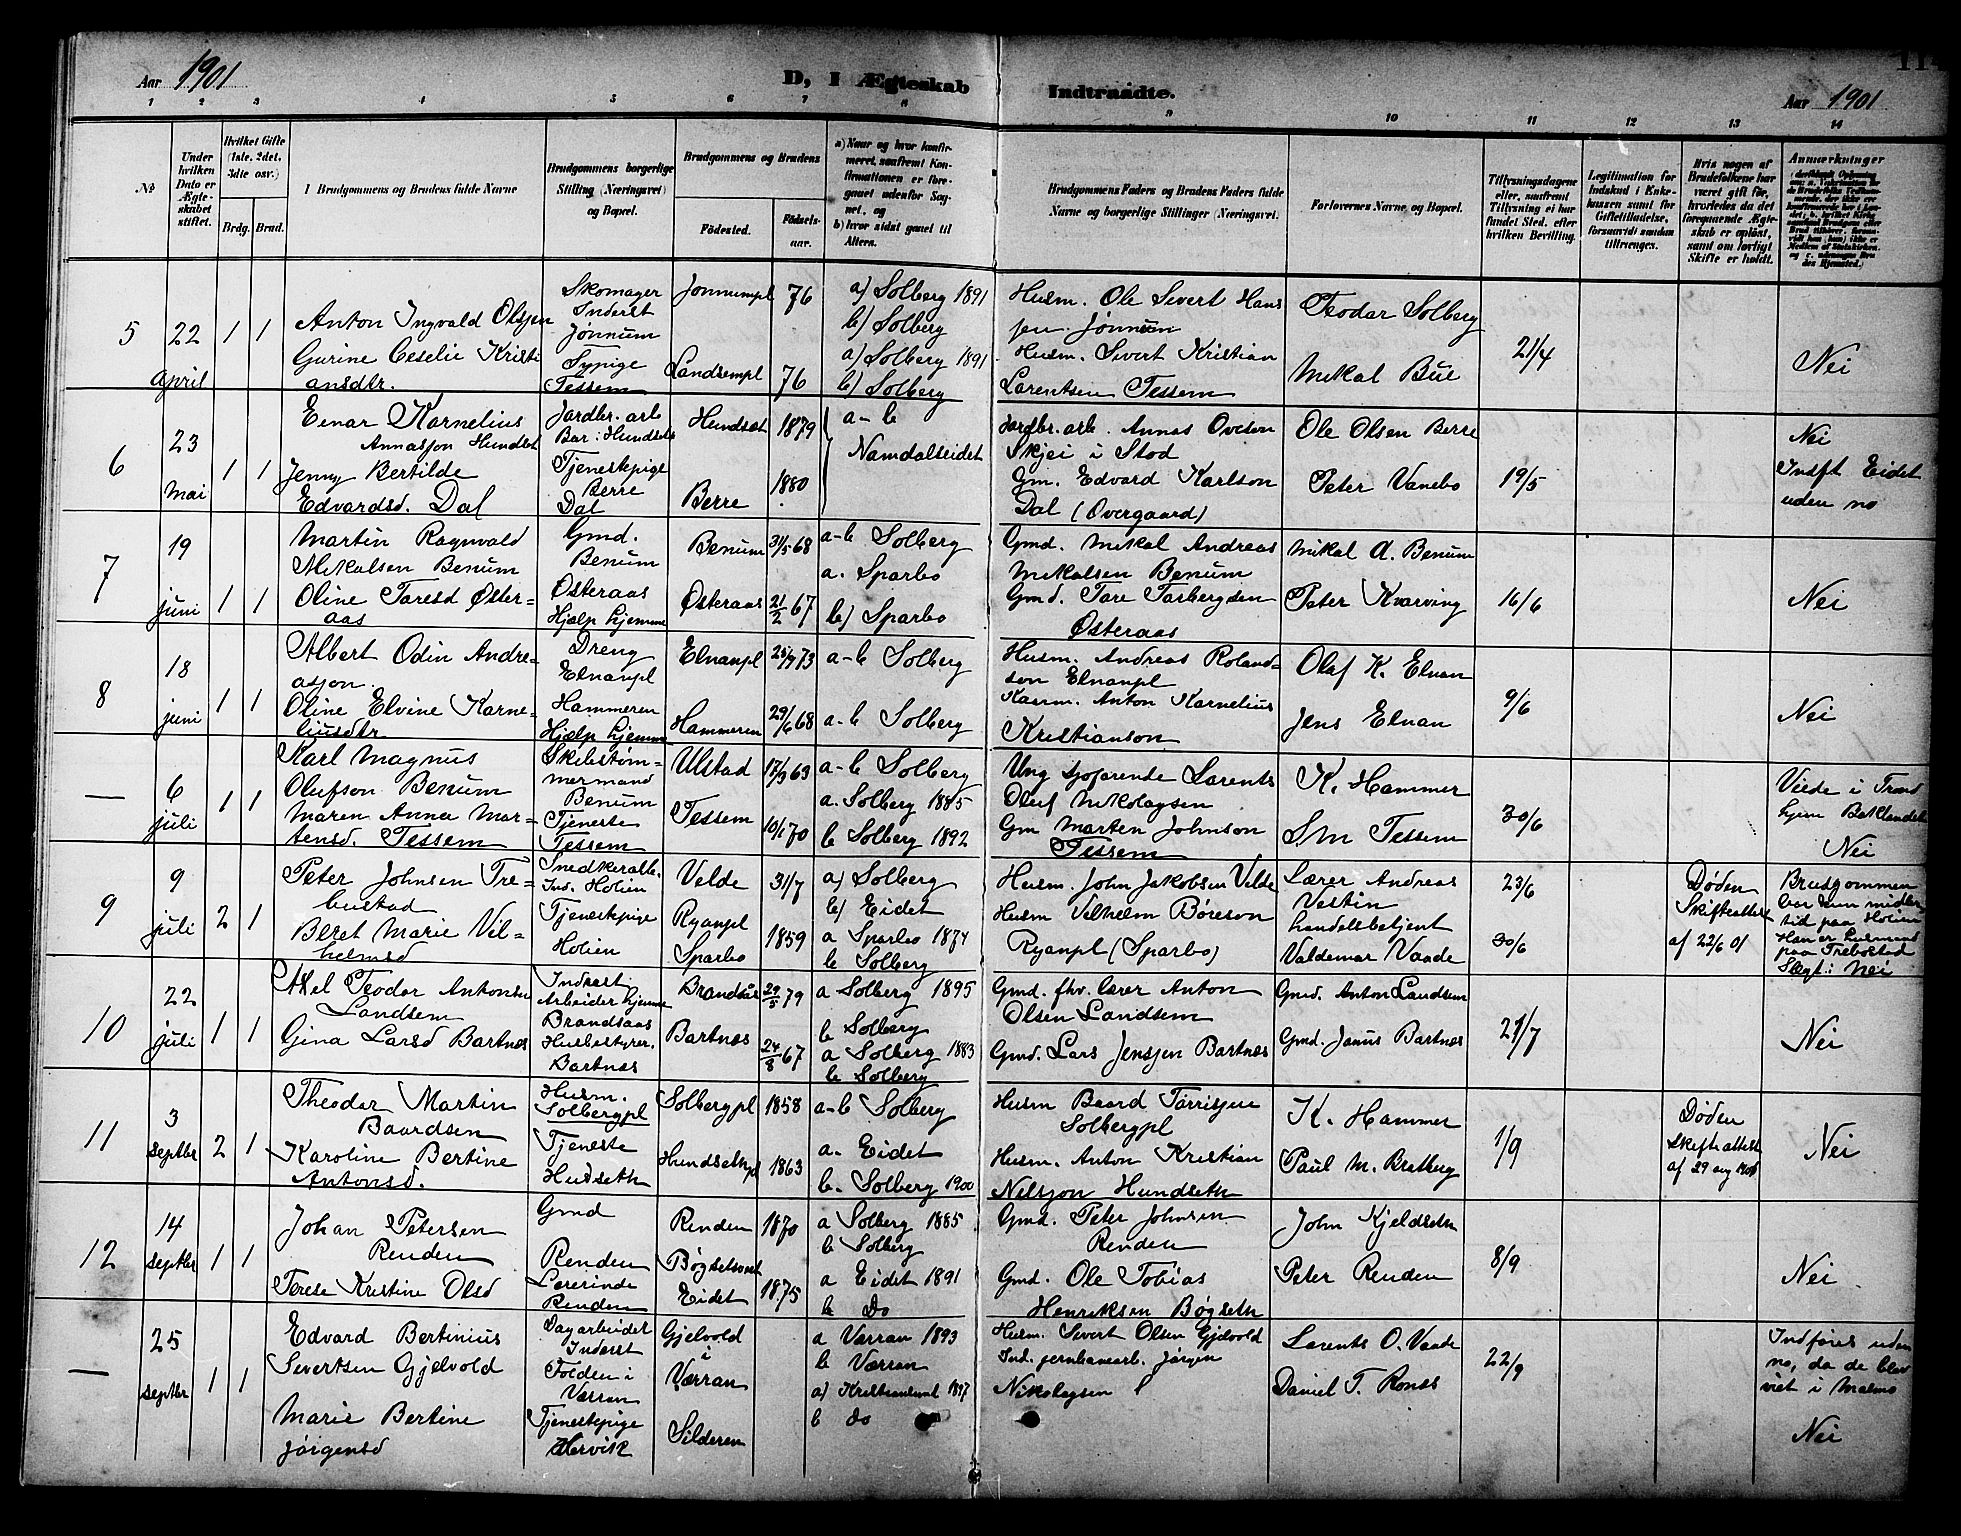 Aar 1901
D, I Ægteskab Indtraadte.
Aar 1901
1 2 3 4 5 6 7 8 9 10 11 12 13 14
No
Under hvilken Dato er Ægteskabet stiftet.
Hvilket Gifte (1ste, 2det, 3die osv.)
Brdg. Brud.
Brudgommens og Brudens fulde Navne
Brudgommens borgerlige Stilling (Næringsvei) og Bopæl.
Brudgommens og Brudens
Fødested.
Fødselsaar.
b) hvor sidst gaaet til Alters.
Brudgommens Faders og Brudens Faders fulde Navne og borgerlige Stillinger (Næringsvei.
Forlovernes Navne og Bopæl.
Tillysningsdagene eller, saafremt Tillysning ei har fundet Sted, efter hvilken Bevilling.
Legitimation for Indskud i Enkekassen samt for Giftetilladelse, forsaavidt saadan tiltrænges.
Hvis nogen af Brudefolkene har været gift før, hvorledes da det foregaaende Ægteskab er opløst, samt om lovligt Skifte er holdt.
Anmærkninger
5
22 April
1 1
Anton Ingvald Olsjen
Gurine Ceselie Kristi
ansdtr.
Skomager
Inderst
Jønnum
Tessem
Jønnumpl 76
Landsempl 76
a) Solberg 1891
b) Solberg
a) Solberg 1891
b) Solberg
Husm. Ole Sivert Hans
jen Jønnum
Husm. Sivert Kristian
Larentsen Tessem
Teodor Solberg
Mikal Bue
21/4
Nei
6
23 Mai
1 1
Einar Kornelius
Annasjon Hundset
Jenny Bertilde
Edvardsd. Dal
Jordbr. arb
Tjenestepige
Berre
Dal
Hundsæt 1879
Berre 1880
a-b
Namdalseidet
Jordbr. arb. Annas Oveson
Skjei i Stod
Gm. Edvard Karlson
Dal (Overgaard)
Ole Olsen Berre
Peter Vanebo
19/5
Nei
Indft Eidet
uden no
7
19 juni
1 1
Martin Ragnvald
Mikalsen Benum
Oline Toresd Øster=
aas
Gmd.
Benum
Østeraas
Hjælp hjemme
Benum 31/5 68
Østeraas 21/2 67
a-b Solberg
a. Sparbo
b) Sparbo
Gmd. Mikal Andreas
Mikalsen Benum
Gmd. Tore Torbergsen
Østeraas
Mikal A. Benum
Peter Kvarving
16/6
Nei
8
18 juni
1 1
Albert Odin Andre=
asjon.
Oline Elvine Karne=
liusdtr
Dreng
Elnanpl
Hammeren
Hjælp hjemme
Elnanpl 73
Hammeren 29/6 68
a-b Solberg
a-b Solberg
Husm. Andreas Roland=
son Elnanpl
Anton Karnelius
Kristianson
Olaf K. Elnan
Jens Elnan
9/6
Nei
—
6 juli
1 1
Karl Magnus
Olufson Benum
Maren Anna Mar=
tensd. Tessem
Skibstøm=
mermand
Benum
Tjeneste
Tessem
Ulstad 17/3 63
Tessem 10/1 70
a-b Solberg
a. Solberg 1885
b Solberg 1892
Ung sjøfarende Larents
Oluf Nikolaysen
Gm Marten Johnson
Tessem
K. Hammer
S M Tessem
30/6
Viede i Trond
hjem Baklandet
Nei
9
9 juli
2 1
Peter Johnsen Tre=
bustad
Beret Marie Vil=
helmsd
Ind. Holien
Tjenestepige
Holien
Velde 31/7
Ryanpl
Sparbo 1859
a) Solberg
b) Eidet
a Sparbo 1874
b Solberg
Husm. John Jakobsen Velde
Husm Vilhelm Børeson
Ryanpl (Sparbo)
Lærer Andreas
Vestin
handelsbetjent
Valdemar Vaade
23/6
30/6
Døden
Skifteattest
af 22/6 01
Brudgommen
var kun midler
tid paa Holien
paa Trebostad
Slegt: Nei
10
22 juli
1 1
Axel Teodor Antonsen
Landsem
Gina Larsd Bartnes
Inderst
Arbeider hjemme
Brandsaas
Husbestyrer.
Bartnes
29/5 79
Bartnæs 24/8 67
a Solberg 1895
b Solberg
a Solberg 1883
b Solberg
Gmd. fhv. lærer Anton
Olsen Landsem
Gmd. Lars Jensjen Bartnes
Gmd. Anton Landsem
Gmd. Janus Bartnes
21/7
Nei
11
3 septbr
2 1
Theodor Martin
Baardsen
Karoline Bertine
Antonsd.
Husm.
Solbergpl
Tjeneste
Hudseth
Solbergpl 1858
Hundsethpl 1863
a-b Solberg
a. Eidet
b. Solberg 1900
Husm Baard Torrisjen
Solbergpl
Husm. Anton Kristian
Nelsjon Hundseth
K. Hammer
Paul M. Bratberg
1/9
Døden
Skifteattest
af 29 aug 1901
Nei
12
14 septbr
1 1
Johan Petersen
Renden
Terese Kristine Olsd
Gmd
Renden
Lærerinde
Renden
Renden 1870
Eidet 1875
a Solberg 1885
b Solberg
a Eidet 1891
b Do
Gmd. Peter Johnsen
Renden
Gmd. Ole Tobias
Henriksen Bøgseth
John Kjeldseth
Peter Renden
8/9
Nei
—
25 septbr
1 1
Edvard Bertinius
Sivertsen Gjelvold
Marie Bertine
Jørgensd
Dagarbeider
Inderst
Folden i
Værran
Tjenestepige
Hervik
Gjelvold
i
Værran
Silderen
a Værran 1893
b Værran
a) Kristiansund 1897
b do
Husm. Sivert Olsen Gjelvold
Ind. jernbanearb. Jørgen
Nikolaysen
Larents O. Vaade
Daniel T. Ronss
22/9
Indføres uden
no, da de blev
viet i Malmo
Nei